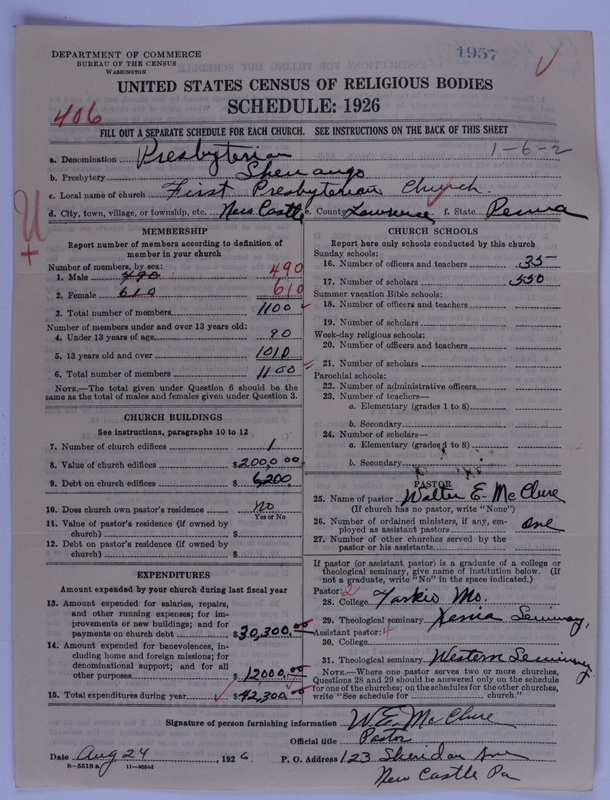 DEPARTMENT OF COMMERCE
BUREAU OF THE CENSUS
WASHINGTON
1957
UNITED STATES CENSUS OF RELIGIOUS BODIES
SCHEDULE: 1926
406
FILL OUT A SEPARATE SCHEDULE FOR EACH CHURCH. SEE INSTRUCTIONS ON THE BACK OF THIS SHEET
1-6-2
a. Denomination Presbyterian
b. Presbytery Shenango
c. Local name of church First Presbyterian Church.
d. City, town, village, or township, etc. New Castle e. County Lawrence f. State Penna
MEMBERSHIP
Report number of members according to definition of member in your church
Number of members, by sex:
1. Male 490 490
2. Female 610 610
3. Total number of members 1100
Number of members under and over 13 years old:
4. Under 13 years of age 90
5. 13 years old and over 1010
6. Total number of members 1100
NOTE.—The total given under Question 6 should be the same as the total of males and females given under Question 3.
CHURCH BUILDINGS
See instructions, paragraphs 10 to 12
7. Number of church edifices 1
8. Value of church edifices $200,000
9. Debt on church edifices $6,200
10. Does church own pastor's residence No
Yes or No
11. Value of pastor's residence (if owned by church) $
12. Debt on pastor's residence (if owned by church) $
EXPENDITURES
Amount expended by your church during last fiscal year
13. Amount expended for salaries, repairs, and other running expenses; for improvements or new buildings; and for payments on church debt $30,300.00
14. Amount expended for benevolences, including home and foreign missions; for denominational support; and for all other purposes 12000.00
15. Total expenditures during year $42,300.00
CHURCH SCHOOLS
Report here only schools conducted by this church
Sunday schools:
16. Number of officers and teachers 35
17. Number of scholars 550
Summer vacation Bible schools:
18. Number of officers and teachers
19. Number of scholars
Week-day religious schools:
20. Number of officers and teachers
21. Number of scholars
Parochial schools:
22. Number of administrative officers
23. Number of teachers—
a. Elementary (grades 1 to 8)
b. Secondary
24. Number of scholars—
a. Elementary (grades 1 to 8)
b. Secondary
PASTOR
25. Name of pastor Walter E. McClure
(If church has no pastor, write "None")
26. Number of ordained ministers, if any, employed as assistant pastors one
27. Number of other churches served by the pastor or his assistants
If pastor (or assistant pastor) is a graduate of a college or theological seminary, give name of institution below. (If not a graduate, write "No" in the space indicated.)
Pastor: 2
28. College Tarkio Mo.
29. Theological seminary Xenia Seminary,
Assistant pastor: 4
30. College
31. Theological seminary Western Seminary
NOTE.—Where one pastor serves two or more churches, Questions 28 and 29 should be answered only on the schedule for one of the churches; on the schedules for the other churches, write "See schedule for church."
Signature of person furnishing information W. E. McClure
Official title Pastor
Date Aug 24, 1926 P. O. Address 123 Sheridan Ave
8-5518a 11-9864
New Castle Pa